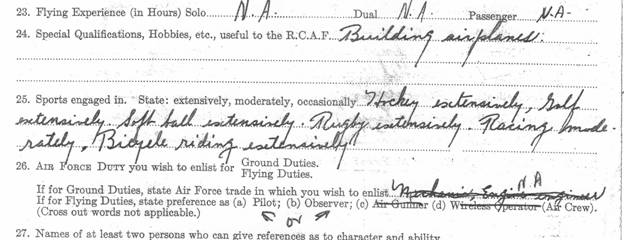 23. Flying Experience (in Hours) Solo N.A. Dual N.A. Passenger N.A.
24. Special Qualifications, Hobbies, etc., useful to the R.C.A.F. Building airplanes.
25. Sports engaged in. State: extensively, moderately, occasionally Hockey extensively, Golf
extensively. Soft ball extensively. Rugby extensively. Racing mode-
rately, Bicycle riding extensively
26. AIR FORCE DUTY you wish to enlist for Ground Duties.
Flying Duties.
N.A
If for Ground Duties, state Air Force trade in which you wish to enlist Mechanic, Engine engineer
If for Flying Duties, state preference as (a) Pilot; (b) Observer; (c) Air Gunner (d) Wireless Operator (Air Crew).
(Cross out words not applicable.) or
27. Names of at least two persons who can give references as to character and ability